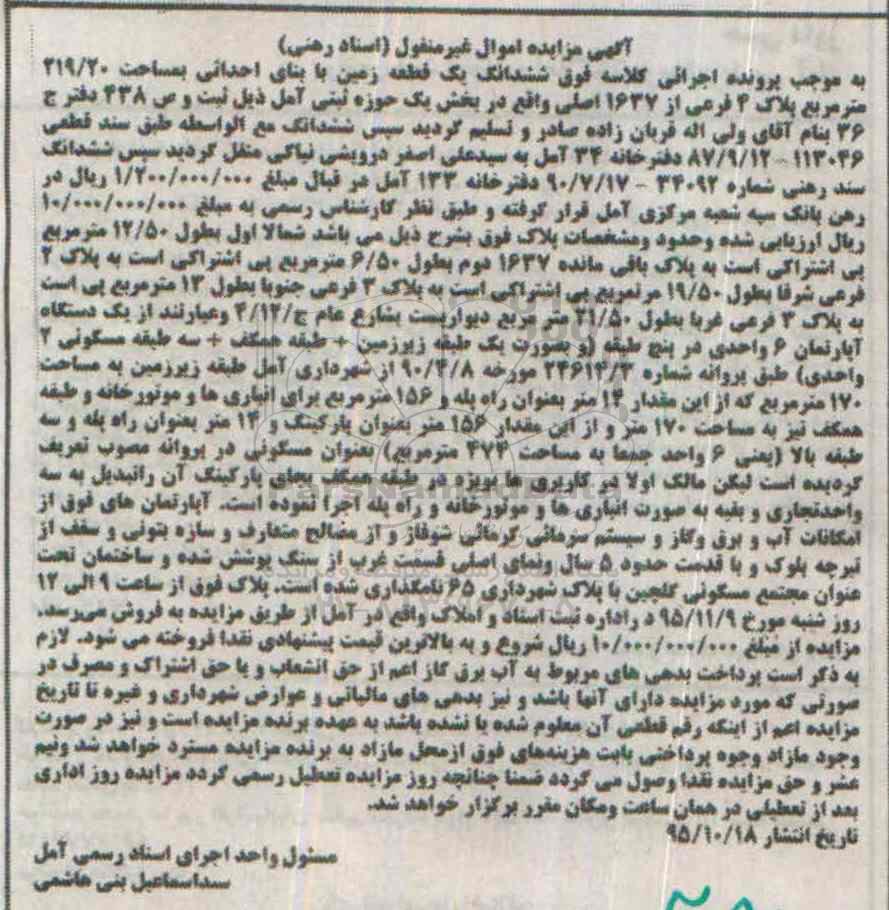 آگهی مزایده اموال غیرمنقول (اسناد رهنی)
به موجب پرونده اجرائی کلاسه فوق ششدانگ یک قطعه زمین با بنای احداثی بمساحت ۲۱۹/۲۰
مترمربع پلاک ۴ فرعی از ۱۶۳۷ اصلی واقع در بخش یک حوزه ثبتی آمل ذیل ثبت و ص ۴۳۸ دفتر ج
۳۶ بنام آقای ولی اله قربان زاده صادر و تسلیم گردید سپس ششدانگ مع الواسطه طبق سند قطعی
۱۱۳۰۴۶ - ۸۷/۹/۱۲ دفترخانه ۳۴ آمل به سیدعلی اصغر درویشی نیاکی منقل گردید سپس ششدانگ
سند رهنی شماره ۳۴۰۹۲ - ۹۰/۷/۱۷ دفترخانه ۱۳۳ آمل در قبال مبلغ ۱/۲۰۰/۰۰۰/۰۰۰ ریال در
رهن بانک سپه شعبه مرکزی آمل قرار گرفته و طبق نظر کارشناس رسمی به مبلغ ۱۰/۰۰۰/۰۰۰/۰۰۰
ریال ارزیابی شده وحدود ومشخصات پلاک فوق بشرح ذیل می باشد شمالا اول بطول ۱۲/۵۰ مترمربع
پی اشتراکی است به پلاک باقی مانده ۱۶۳۷ دوم بطول ۶/۵۰ مترمربع پی اشتراکی است به پلاک ۲
فرعی شرقا بطول ۱۹/۵۰ مرتمربع پی اشتراکی است به پلاک ۳ فرعی جنوبا بطول ۱۳ مترمربع پی است
به پلاک ۳ فرعی غربا بطول ۲۱/۵۰ متر مربع دیواریست بشارع عام ج/۴/۱۲ وعبارتند از یک دستگاه
آپارتمان ۶ واحدی در پنج طبقه (و بصورت یک طبقه زیرزمین + طبقه همکف + سه طبقه مسکونی ۲
واحدی) طبق پروانه شماره ۲۴۶۱۴/۳ مورخه ۹۰/۴/۸ از شهرداری آمل طبقه زیرزمین به مساحت
۱۷۰ مترمربع که از این مقدار ۱۴ متر بعنوان راه پله و ۱۵۶ مترمربع برای انباری ها و موتورخانه و طبقه
همکف نیز به مساحت ۱۷۰ متر و از این مقدار ۱۵۶ متر بعنوان پارکینگ و ۱۴ متر بعنوان راه پله و سه
طبقه بالا (یعنی ۶ واحد جمعا به مساحت ۴۷۴ مترمربع) بعنوان مسکونی در پروانه مصوب تعریف
گردیده است لیکن مالک اولا در کاربری ها بویژه در طبقه همکف بجای پارکینگ آن راتبدیل به سه
واحدتجاری و بقیه به صورت انباری ها و موتورخانه و راه پله اجرا نموده است. آپارتمان های فوق از
امکانات آب و برق وگاز و سیستم سرمائی گرمائی شوفاژ و از مصالح متعارف و سازه بتونی و سقف از
تیرچه بلوک و با قدمت حدود ۵ سال ونمای اصلی قسمت غرب از سنگ پوشش شده و ساختمان تحت
عنوان مجتمع مسکونی گلچین با پلاک شهرداری ۶۵ نامگذاری شده است. پلاک فوق از ساعت ۹ الی ۱۲
روز شنبه مورخ ۹۵/۱۱/۹ د راداره ثبت اسناد و املاک واقع در آمل از طریق مزایده به فروش می‌رسد.
مزایده از مبلغ ۱۰/۰۰۰/۰۰۰/۰۰۰ ریال شروع و به بالاترین قیمت پیشنهادی نقدا فروخته می شود. لازم
به ذکر است پرداخت بدهی های مربوط به آب برق گاز اعم از حق انشعاب و یا حق اشتراک و مصرف در
صورتی که مورد مزایده دارای آنها باشد و نیز بدهی های مالیاتی و عوارض شهرداری و غیره تا تاریخ
مزایده اعم از اینکه رقم قطعی آن معلوم شده یا نشده باشد به عهده برنده مزایده است و نیز در صورت
وجود مازاد وجوه پرداختی بابت هزینه‌های فوق ازمحل مازاد به برنده مزایده مسترد خواهد شد ونیم
عشر و حق مزایده نقدا وصول می گردد ضمنا چنانچه روز مزایده تعطیل رسمی گردد مزایده روز اداری
بعد از تعطیلی در همان ساعت ومکان مقرر برگزار خواهد شد.
تاریخ انتشار ۹۵/۱۰/۱۸
مسئول واحد اجرای اسناد رسمی آمل
سیداسماعیل بنی هاشمی